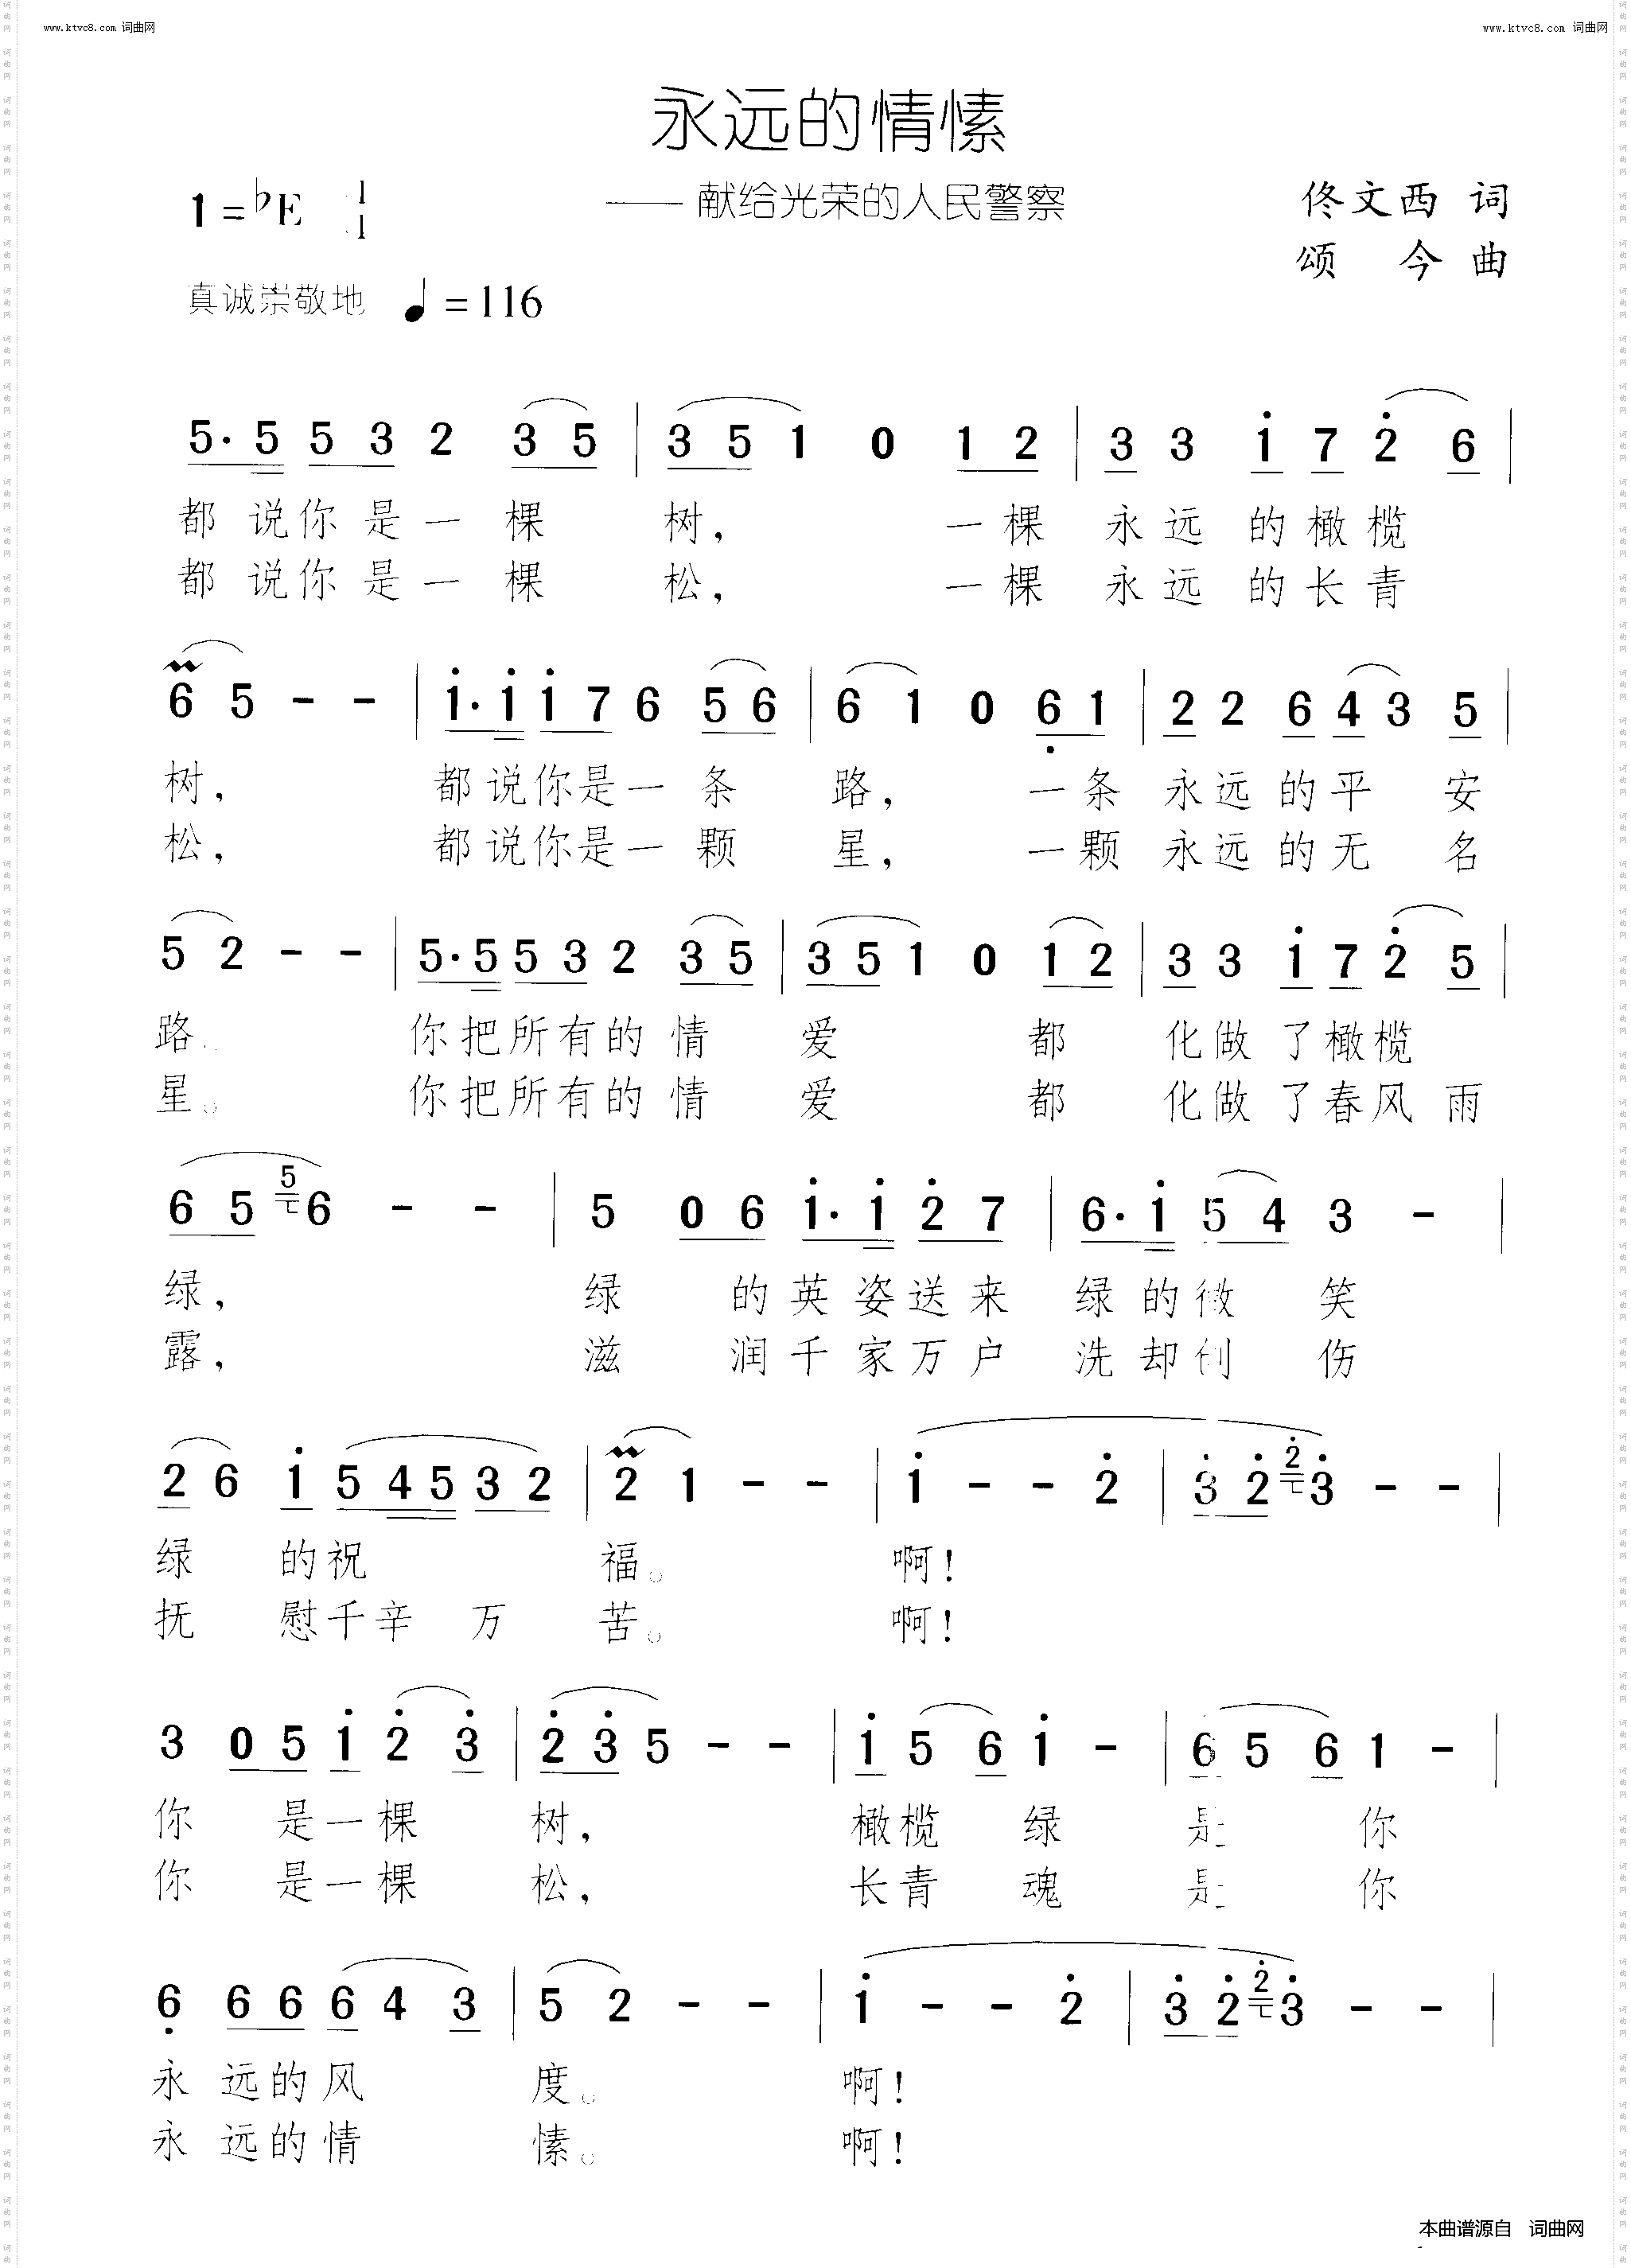 www.ktvc8.com 词曲网
www.ktvc8.com 词曲网
永远的情愫
—— 献给光荣的人民警察
1=♭E
佟文西 词
颂 今 曲
真诚崇敬地 ♩=116
5·5 5 3 2 3 5 | 3 5 1 0 1 2 | 3 3 i 7 2̇ 6 |
都说你是一棵 树, 一棵 永远的橄榄
都说你是一棵 松, 一棵 永远的长青
6 5 - - | i·i i 7 6 5 6 | 6 1 0 6̣ 1 | 2 2 6 4 3 5 |
树, 都说你是一条 路, 一条 永远的平安
松, 都说你是一颗 星, 一颗 永远的无名
5 2 - - | 5·5 5 3 2 3 5 | 3 5 1 0 1 2 | 3 3 i 7 2̇ 5 |
路. 你把所有的情 爱 都 化做了橄榄
星。 你把所有的情 爱 都 化做了春风雨
6 5 5 6 - - | 5 0 6 i·i 2̇ 7 | 6·i 5 4 3 - |
绿, 绿 的英姿送来 绿的微笑
露, 滋 润千家万户 洗却创伤
2 6 i 5 4 5 3 2 | 2 1 - - | i - - 2̇ | 3̇ 2̇ 2̇ 3̇ - - |
绿 的祝 福。 啊!
抚 慰千辛万 苦。 啊!
3 0 5 i 2̇ 3̇ | 2̇ 3̇ 5 - - | i 5 6 i - | 6 5 6 1 - |
你 是一棵 树, 橄榄 绿 是 你
你 是一棵 松, 长青 魂 是 你
6̣ 6 6 6 4 3 | 5 2 - - | i - - 2̇ | 3̇ 2̇ 2̇ 3̇ - - |
永 远的风 度。 啊!
永 远的情 愫。 啊!
本曲谱源自 词曲网